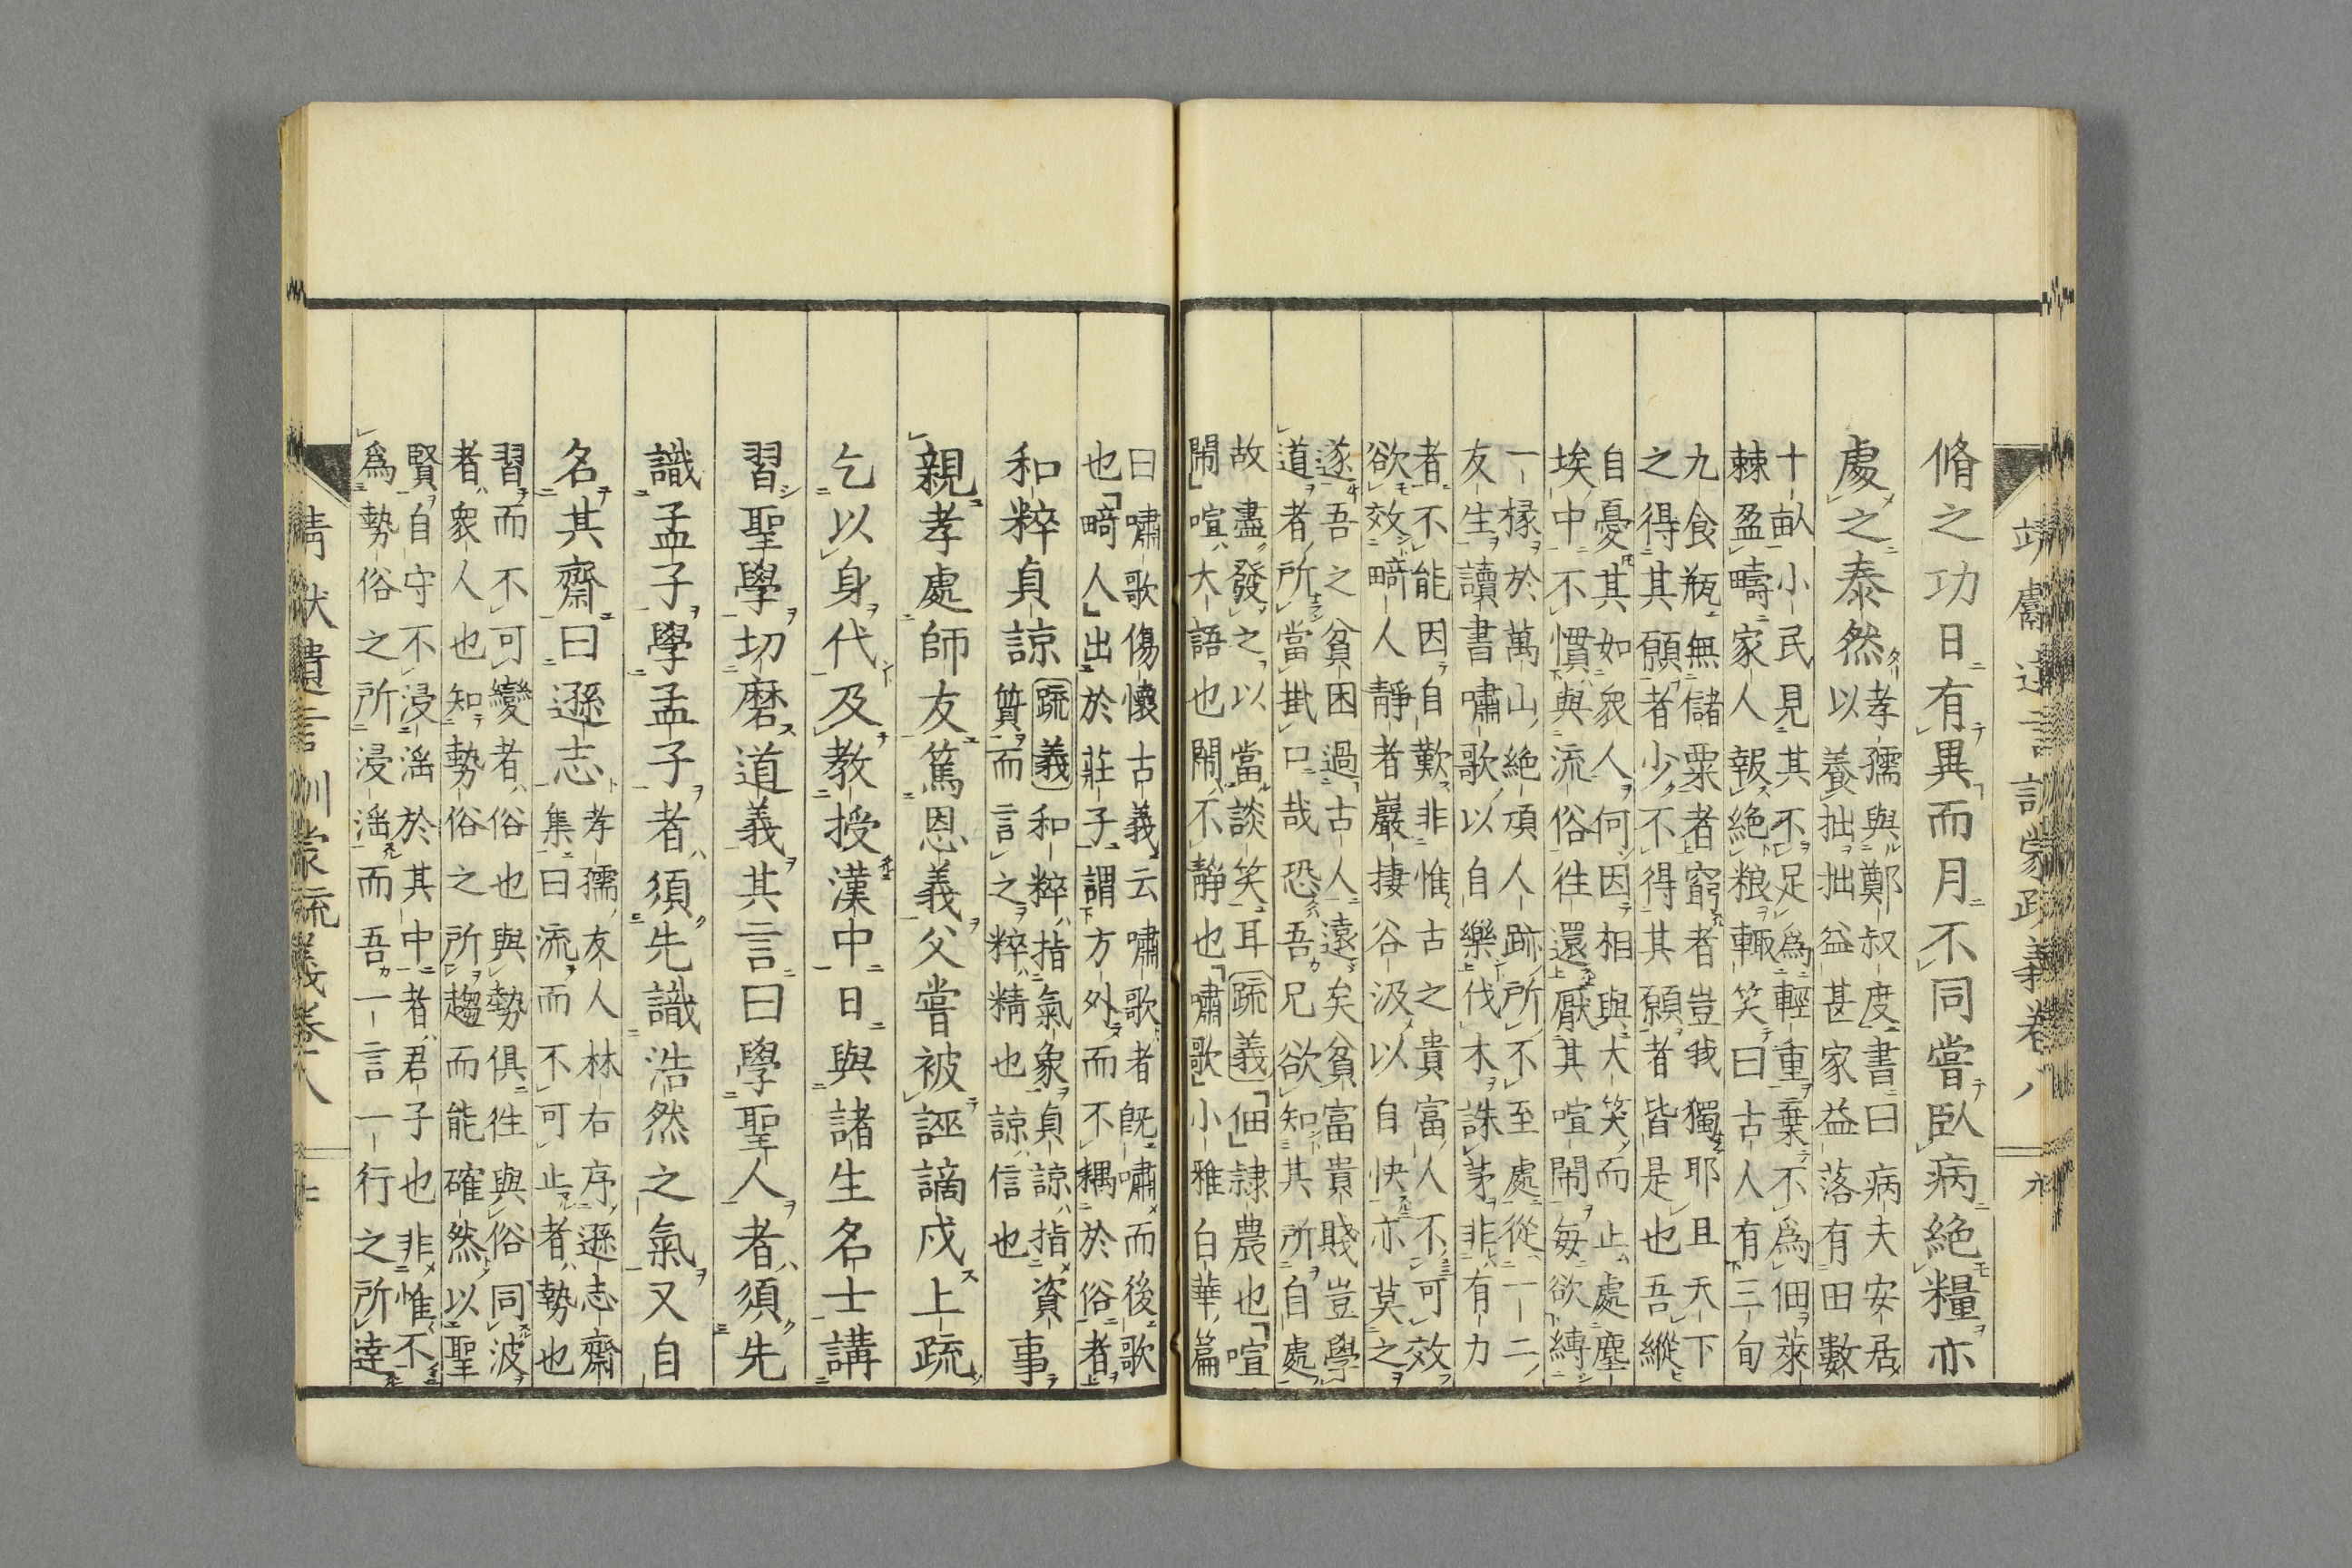 脩之功日有異而月不同嘗臥病絶糧亦
處之泰然
孝孺與鄭叔度書曰病夫安居
以養拙拙益甚家益落有田數
十畝小民見其不足爲輕重棄不爲佃萊
棘盈疇家人報絶粮輙笑曰古人有三旬
九食瓶無儲粟者窮者豈我獨耶且天下
之得其願者少不得其願者皆是也吾縱
自憂其如衆人何因相與大笑而止處塵
埃中不慣與流俗往還厭其喧鬧毎欲縛
一椽於萬山絶頂人跡所不至處從一二
友生讀書嘯歌以自樂伐木誅茅非有力
者不能因自歎非惟古之貴富人不可效
欲效畸人靜者巖棲谷汲以自快亦莫之
遂吾之貧困過古人遠矣貧富貴賤豈學
道者所當掛口哉恐吾兄欲知其所自處
故盡發之以當談笑耳疏義佃隷農也喧
鬧喧大語也鬧不靜也嘯歌小雅白華篇
曰嘯歌傷懷古義云嘯歌者旣嘯而後歌
也畸人出於莊子謂方外而不耦於俗者
和粹貞諒
疏義和粹指氣象貞諒指資
質而言之粹精也諒信也
事
親孝處師友篤恩義父嘗被誣謫戍上疏
乞以身代及教授漢中日與諸生名士講
習聖學切磨道義其言曰學聖人者須先
識孟子學孟子者須先識浩然之氣又自
名其齋曰遜志
孝孺友人林右序遜志齋
集曰流而不可止者勢也
習而不可變者俗也與勢俱往與俗同波
者衆人也知勢俗之所趨而能確然以聖
賢自守不浸淫於其中者君子也非惟不
爲勢俗之所浸淫而吾一言一行之所達
靖獻遺言訓蒙疏義卷八